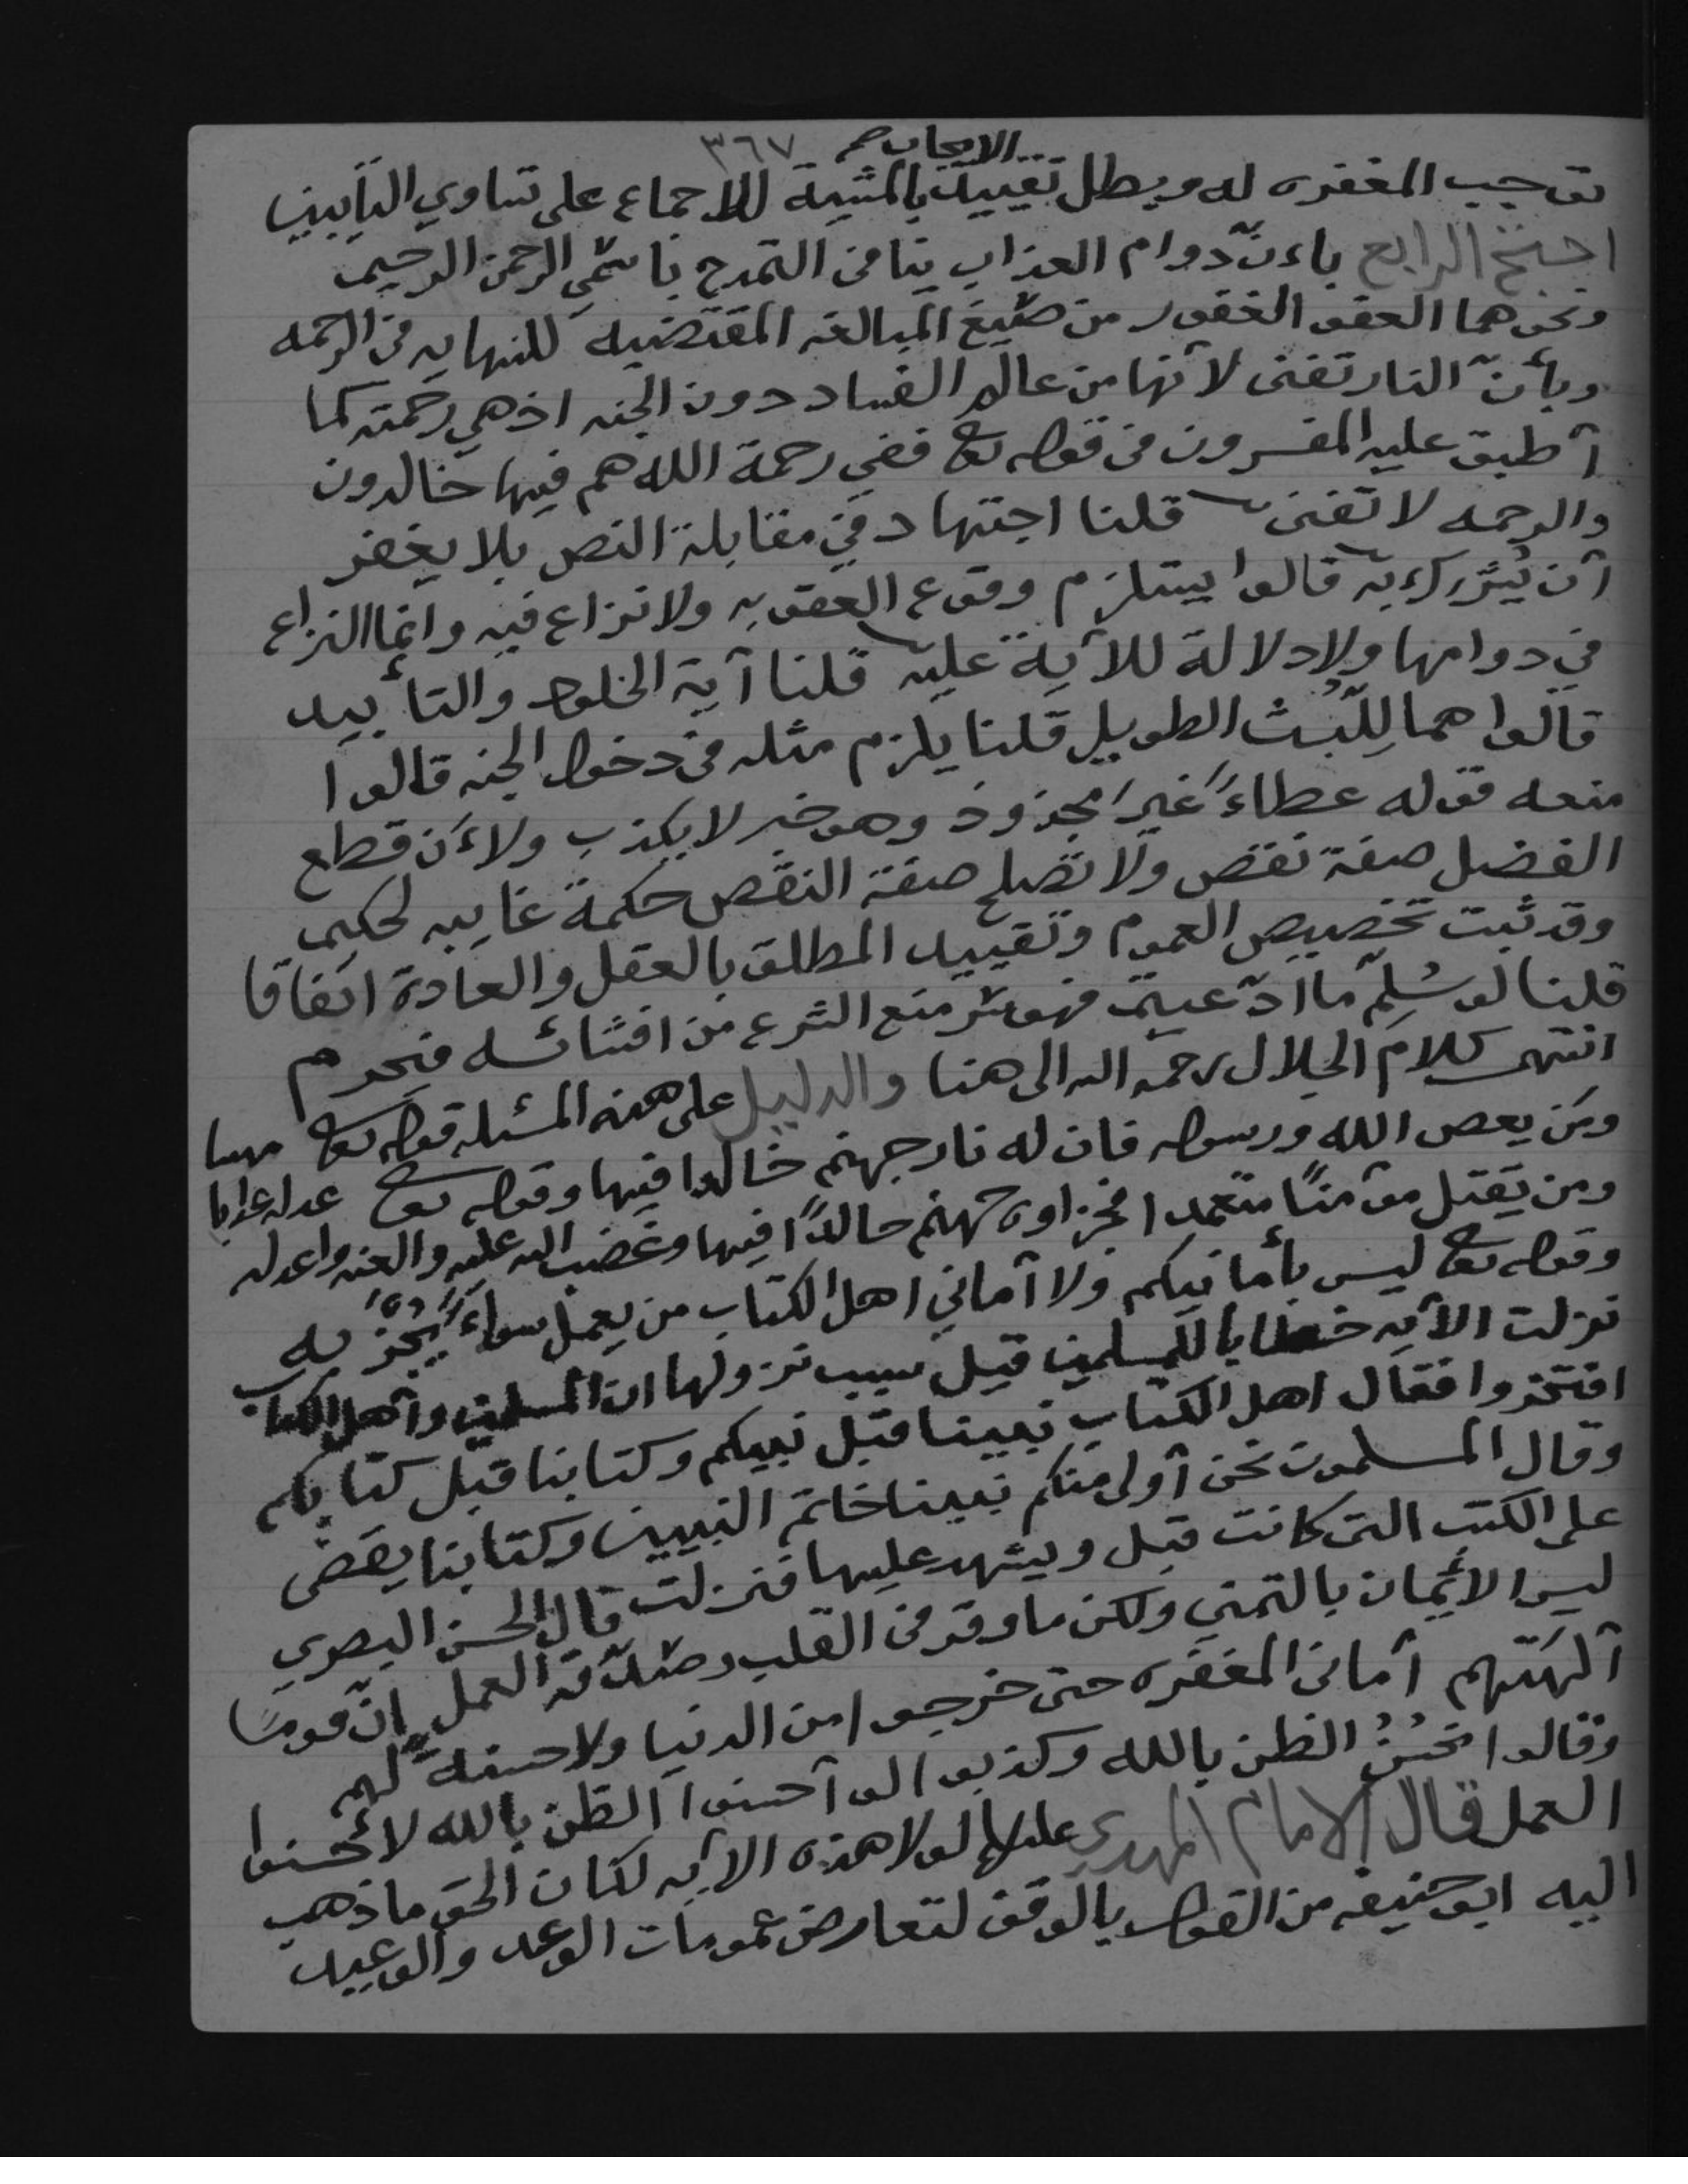 الايجاب صح ٣٦٧
توجب المغفره له ويبطل تقييد بالمشية للاجماع على تساوي التآيبين
احتج الرابع باءنّ دوام العذاب ينافي التمدح باسمَي الرحمن الرحيم
ونحوهما العفو الغفور من صيَغ المبالغه المقتضيه للنهايه في الرحمه
وبأنّ النار تفنى لأنها من عالم الفساد دون الجنه اذ هي رحمته كما
أطبق عليه المفسرون في قوله تعا ففي رحمة الله هم فيها خالدون
والرحمه لا تفنى قلنا اجتهاد في مقابلة النص بلا يغفر
أن يُشرك به قالوا يستلزم وقوع العقوبه ولا نزاع فيه وانما النزاع
في دوامها ولا دلالة للآية عليه قلنا آية الخلود والتأبيد
قالوا هما لِلّبث الطويل قلنا يلزم مثله في دخول الجنه قالوا
منعه قوله عطاءً غيرَ مجذوذ وهو خبر لا يكذب ولاءَن قطع
الفضل صفة نقص ولا تصلح صفة النقص حكمةً غاييه لحكيم
وقد ثبت تخصيص العموم وتقييد المطلق بالعقل والعادة اتفاقا
قلنا لو سُلِمّ ما ادّعيتم فهو سّر منع الشرع من افشائه فيحرم
انتهى كلام الجلال رحمه الله الى هنا والدليل على هذه المسئله قوله تعا
ومَن يعص الله ورسوله فان له نار جهنم خالدا فيها وقوله تعا
ومن يَقتل مؤمنًا متعمدا فجزاوه جهنم خالدًا فيها وغضب الله عليه والعنه واعد له
وقوله تعا ليس بأمانيكم ولا أماني اهل الكتاب من يعمل سواءً يُجزَ به
نزلت الآيه خطابا للمسلمين قيل سبب نزولها ان المسلمين واهل الكتاب
افتخروا فقال اهل الكتاب نبينا قبل نبيكم وكتابنا قبل كتابكم
وقال المسلمون نحن أولى منكم نبينا خاتم النبيين وكتابنا يقضى
على الكتب التى كانت قبل ويشهد عليها فنزلت قال الحسن البصري
ليس الأيمان بالتمني ولكن ما وقر في القلب وصدّقه العمل إنّ قومًا
ألهَتهم أماني المغفره حتى خرجوا من الدنيا ولا حسنةً لهم
وقالوا نحُسِنُ الظن بالله وكذبوا لو أحسنوا الظن بالله لأحسنوا
العمل قال الامام المهدي عليلم لولا هذه الآيه لكان الحق ما ذهب
اليه ابو حنيفه من القول بالوقف لتعارض عمومات الوعد والوعيد